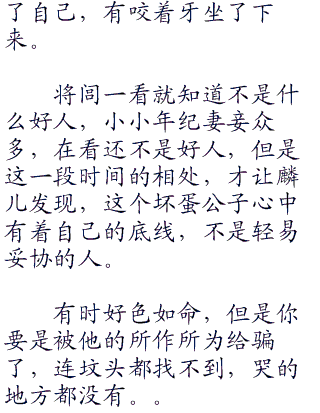 了自己，有咬着牙坐了下
来。
将闾一看就知道不是什
么好人，小小年纪妻妾众
多，在看还不是好人，但是
这一段时间的相处，才让麟
儿发现，这个坏蛋公子心中
有着自己的底线，不是轻易
妥协的人。
有时好色如命，但是你
要是被他的所作所为给骗
了，连坟头都找不到，哭的
地方都没有。。